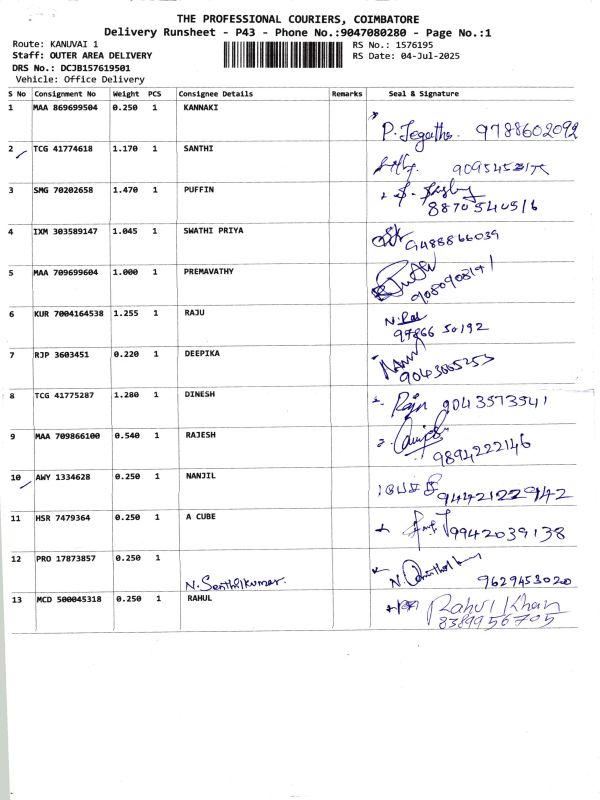 THE PROFESSIONAL COURIERS, COIMBATORE
Delivery Runsheet - P43 - Phone No.:9047080280 - Page No.:1
Route: KANUVAI 1
Staff: OUTER AREA DELIVERY
DRS No.: DCJB157619501
Vehicle: Office Delivery
RS No.: 1576195
RS Date: 04-Jul-2025
S No Consignment No Weight PCS Consignee Details Remarks Seal & Signature
1 MAA 869699504 0.250 1 KANNAKI
P. Jegatha. 9788602092
2 TCG 41774618 1.170 1 SANTHI
3 SMG 70202658 1.470 1 PUFFIN
8870540516
4 IXM 303589147 1.045 1 SWATHI PRIYA
9488866039
5 MAA 709699604 1.000 1 PREMAVATHY
6 KUR 7004164538 1.255 1 RAJU
97866 50192
7 RJP 3603451 0.220 1 DEEPIKA
8 TCG 41775287 1.280 1 DINESH
9043573541
9 MAA 709866100 0.540 1 RAJESH
9894222146
10 AWY 1334628 0.250 1 NANJIL
9442122942
11 HSR 7479364 0.250 1 A CUBE
9942039138
12 PRO 17873857 0.250 1
N. Senthilkumar. 9629453020
13 MCD 500045318 0.250 1 RAHUL
Rahul Khan
8389956705